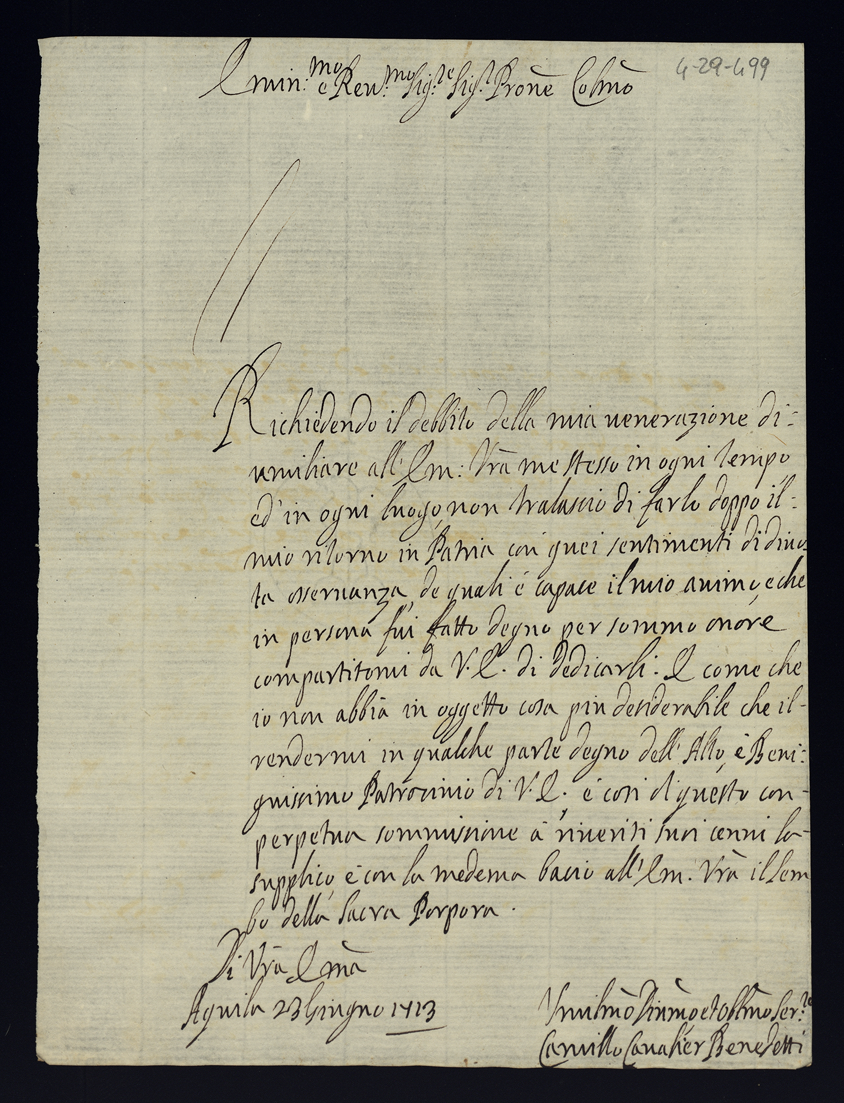 4-29-499
Emin:mo e Reu:mo Sig:re Sig:r Prone Colmo
Richiedendo il debbito della mia uenerazione di=
umiliare all'Em: Vra me stesso in ogni tempo
ed' in ogni luogo, non tralascio di farlo doppo il=
mio ritorno in Patria con quei sentimenti di diuo=
ta osseruanza, de quali è capace il mio animo, e che
in persona fui fatto degno per sommo onore
compartitomi da V. E. di dedicarli. E come che
io non abbia in oggetto cosa piu desiderabile che il-
rendermi in qualche parte degno dell'Alto, è Beni=
gnissimo Patrocinio di V. E., e così di questo con-
perpetua sommissione a' riueriti suoi cenni la-
supplico, è con la medema bacio all'Em. Vra il lem
bo della Sacra Porpora.
Di Vra Emã
Aquila 23 Giugno 1713
Vmilmo Diumo et Obbmo Ser:re
Camillo Caualier Benedetti